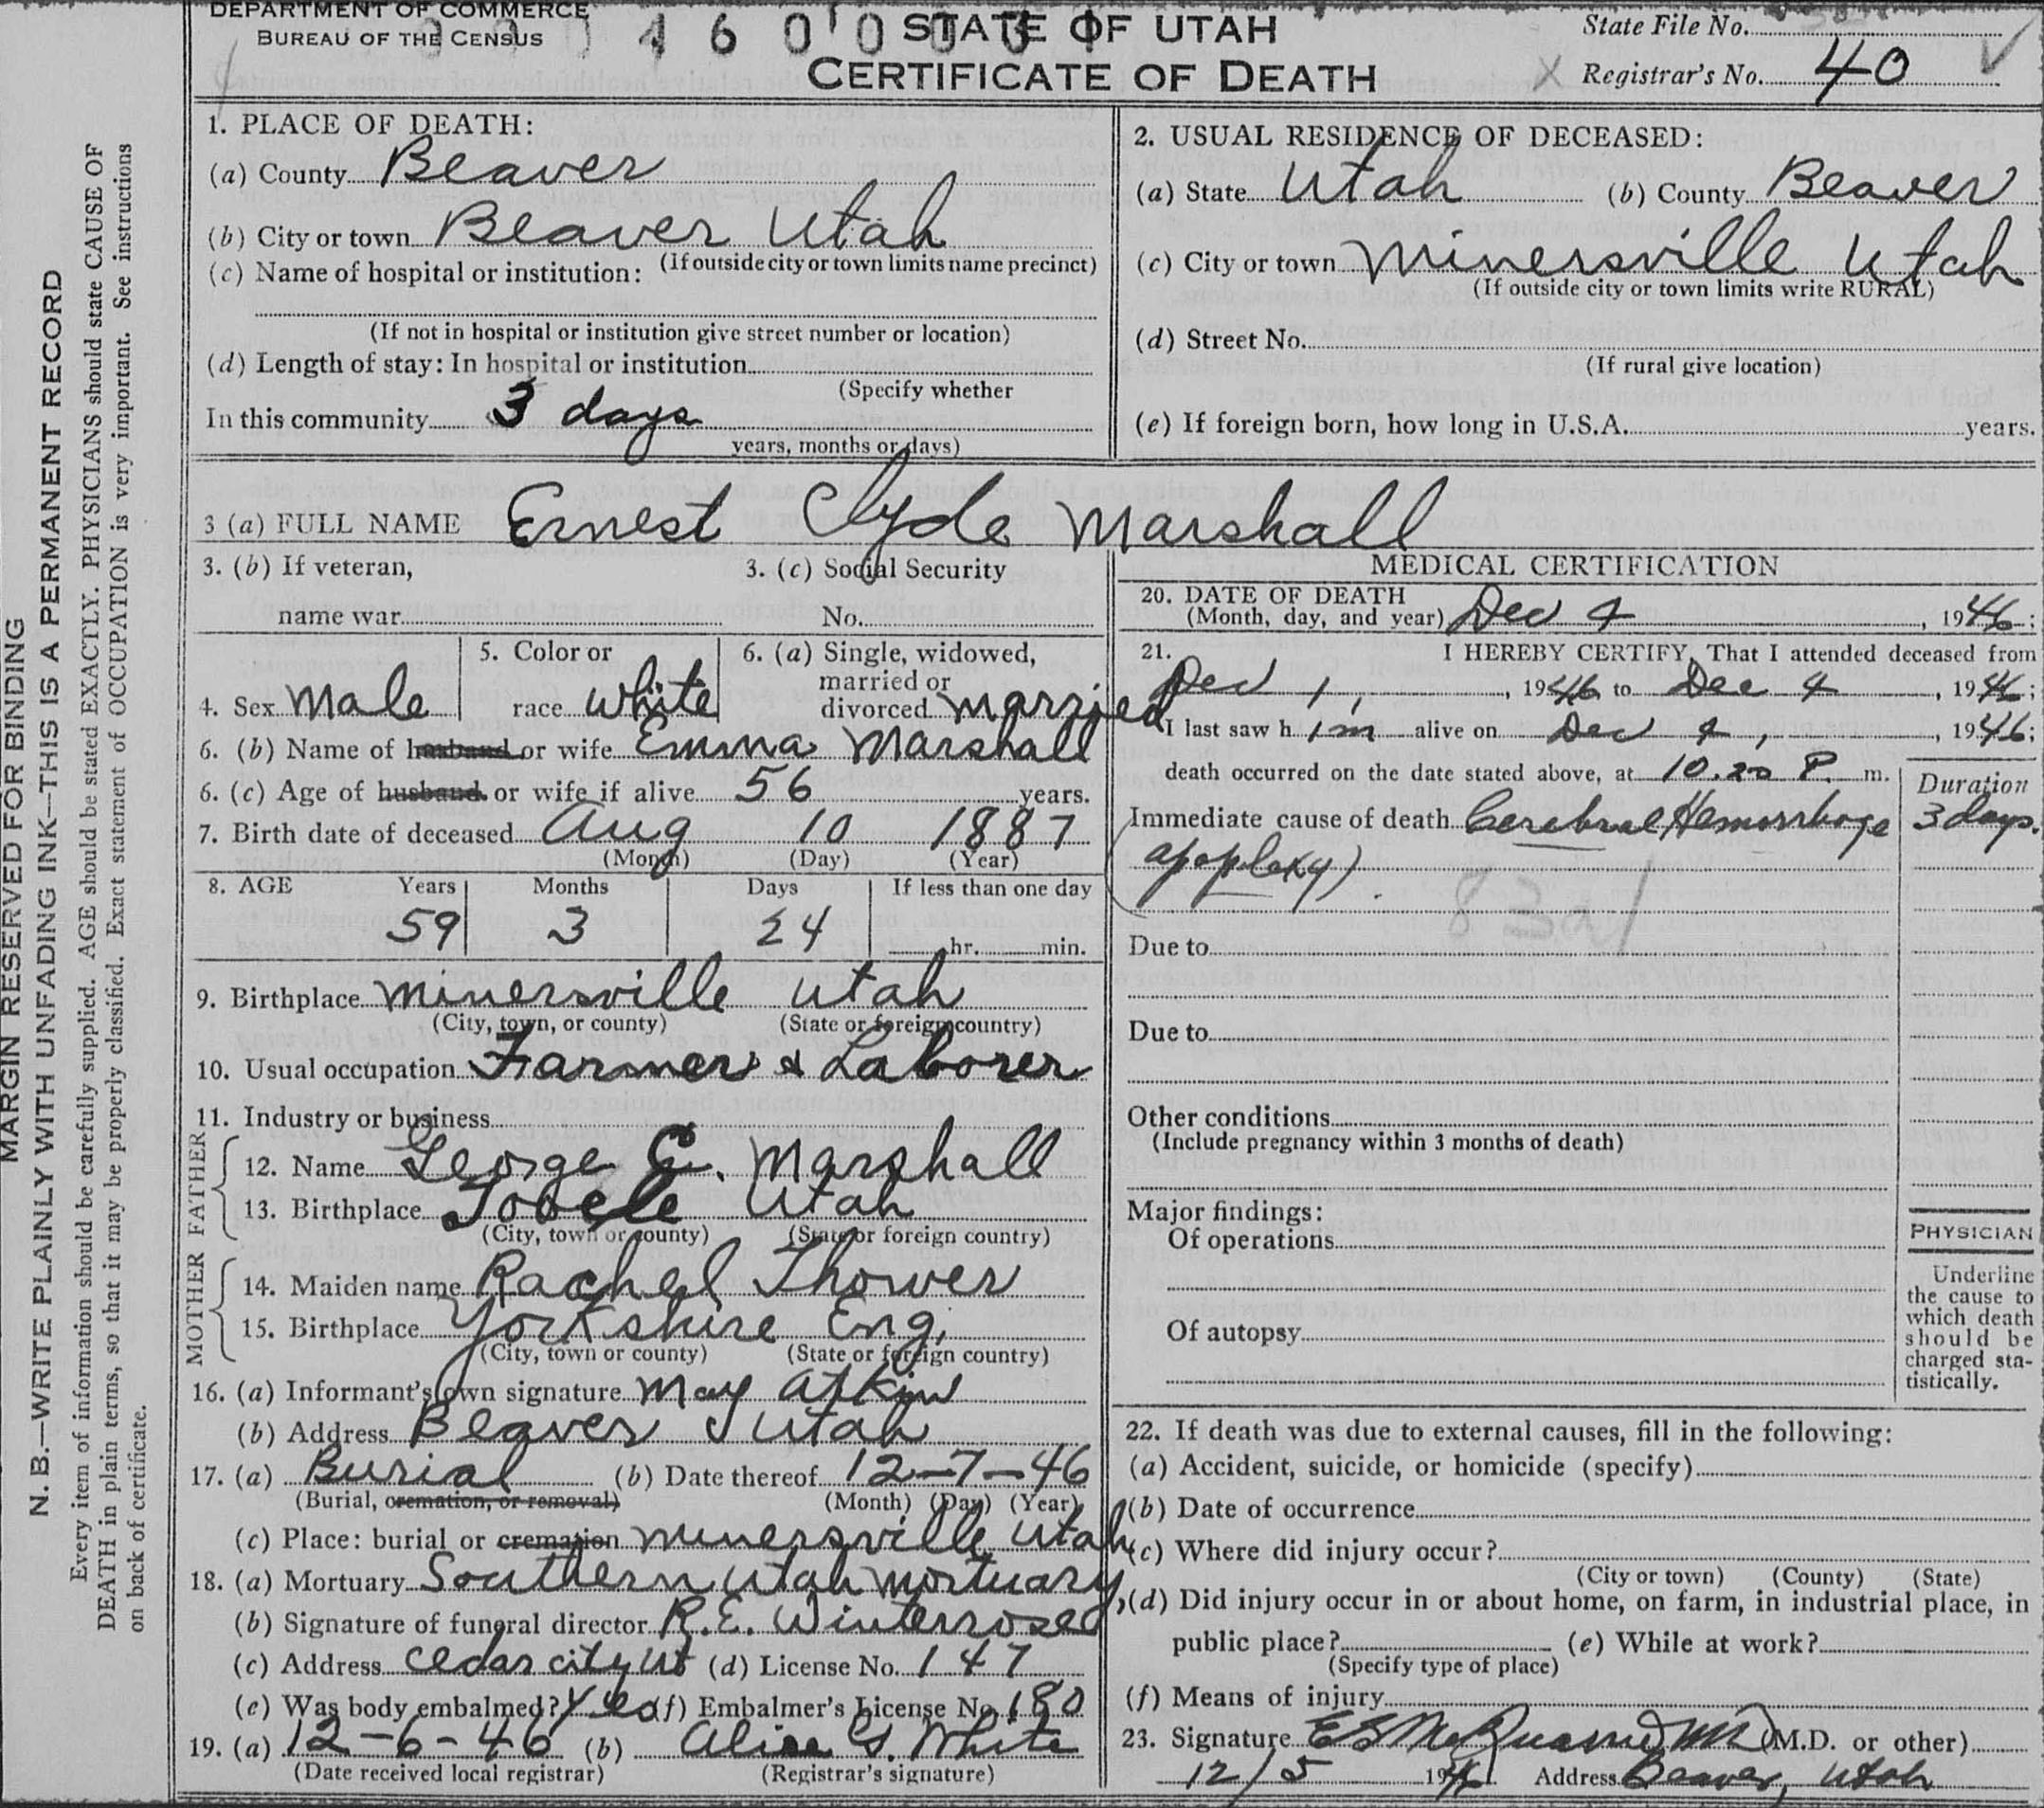 DEPARTMENT OF COMMERCE
BUREAU OF THE CENSUS
STATE OF UTAH
CERTIFICATE OF DEATH
State File No.
Registrar's No. 40
MARGIN RESERVED FOR BINDING
N. B.—WRITE PLAINLY WITH UNFADING INK—THIS IS A PERMANENT RECORD
Every item of information should be carefully supplied. AGE should be stated EXACTLY. PHYSICIANS should state CAUSE OF
DEATH in plain terms, so that it may be properly classified. Exact statement of OCCUPATION is very important. See instructions
on back of certificate.
1. PLACE OF DEATH:
(a) County Beaver
(b) City or town Beaver Utah
(If outside city or town limits name precinct)
(c) Name of hospital or institution:
(If not in hospital or institution give street number or location)
(d) Length of stay: In hospital or institution
(Specify whether
In this community 3 days
years, months or days)
2. USUAL RESIDENCE OF DECEASED:
(a) State Utah (b) County Beaver
(c) City or town Minersville Utah
(If outside city or town limits write RURAL)
(d) Street No.
(If rural give location)
(e) If foreign born, how long in U.S.A. years.
3 (a) FULL NAME Ernest Clyde Marshall
3. (b) If veteran,
name war
3. (c) Social Security
No.
4. Sex Male
5. Color or
race White
6. (a) Single, widowed,
married or
divorced married
6. (b) Name of husband or wife Emma Marshall
6. (c) Age of husband or wife if alive 56 years.
7. Birth date of deceased Aug 10 1887
(Month) (Day) (Year)
8. AGE Years Months Days If less than one day
59 3 24 hr. min.
9. Birthplace Minersville Utah
(City, town, or county) (State or foreign country)
10. Usual occupation Farmer & Laborer
11. Industry or business
FATHER
12. Name George E. Marshall
13. Birthplace Tooele Utah
(City, town or county) (State or foreign country)
MOTHER
14. Maiden name Rachel Thower
15. Birthplace Yorkshire Eng.
(City, town or county) (State or foreign country)
16. (a) Informant's own signature May Atkin
(b) Address Beaver Utah
17. (a) Burial (b) Date thereof 12-7-46
(Burial, cremation, or removal) (Month) (Day) (Year)
(c) Place: burial or cremation Minersville Utah
18. (a) Mortuary Southern Utah Mortuary
(b) Signature of funeral director R.E. Winterrose
(c) Address Cedar City Ut (d) License No. 147
(e) Was body embalmed? Yes (f) Embalmer's License No. 180
19. (a) 12-6-46 (b) Alice G. White
(Date received local registrar) (Registrar's signature)
MEDICAL CERTIFICATION
20. DATE OF DEATH
(Month, day, and year) Dec 4, 1946;
21. I HEREBY CERTIFY, That I attended deceased from
Dec 1, 1946 to Dec 4, 1946;
I last saw him alive on Dec 4, 1946;
death occurred on the date stated above, at 10.20 P. m.
Duration
Immediate cause of death Cerebral Hemorrhage 3 days.
(apoplexy).
83a
Due to
Due to
Other conditions
(Include pregnancy within 3 months of death)
Major findings:
Of operations
Of autopsy
PHYSICIAN
Underline
the cause to
which death
should be
charged sta-
tistically.
22. If death was due to external causes, fill in the following:
(a) Accident, suicide, or homicide (specify)
(b) Date of occurrence
(c) Where did injury occur?
(City or town) (County) (State)
(d) Did injury occur in or about home, on farm, in industrial place, in
public place? (e) While at work?
(Specify type of place)
(f) Means of injury
23. Signature (M.D. or other)
12/5 1946 Address Beaver, Utah